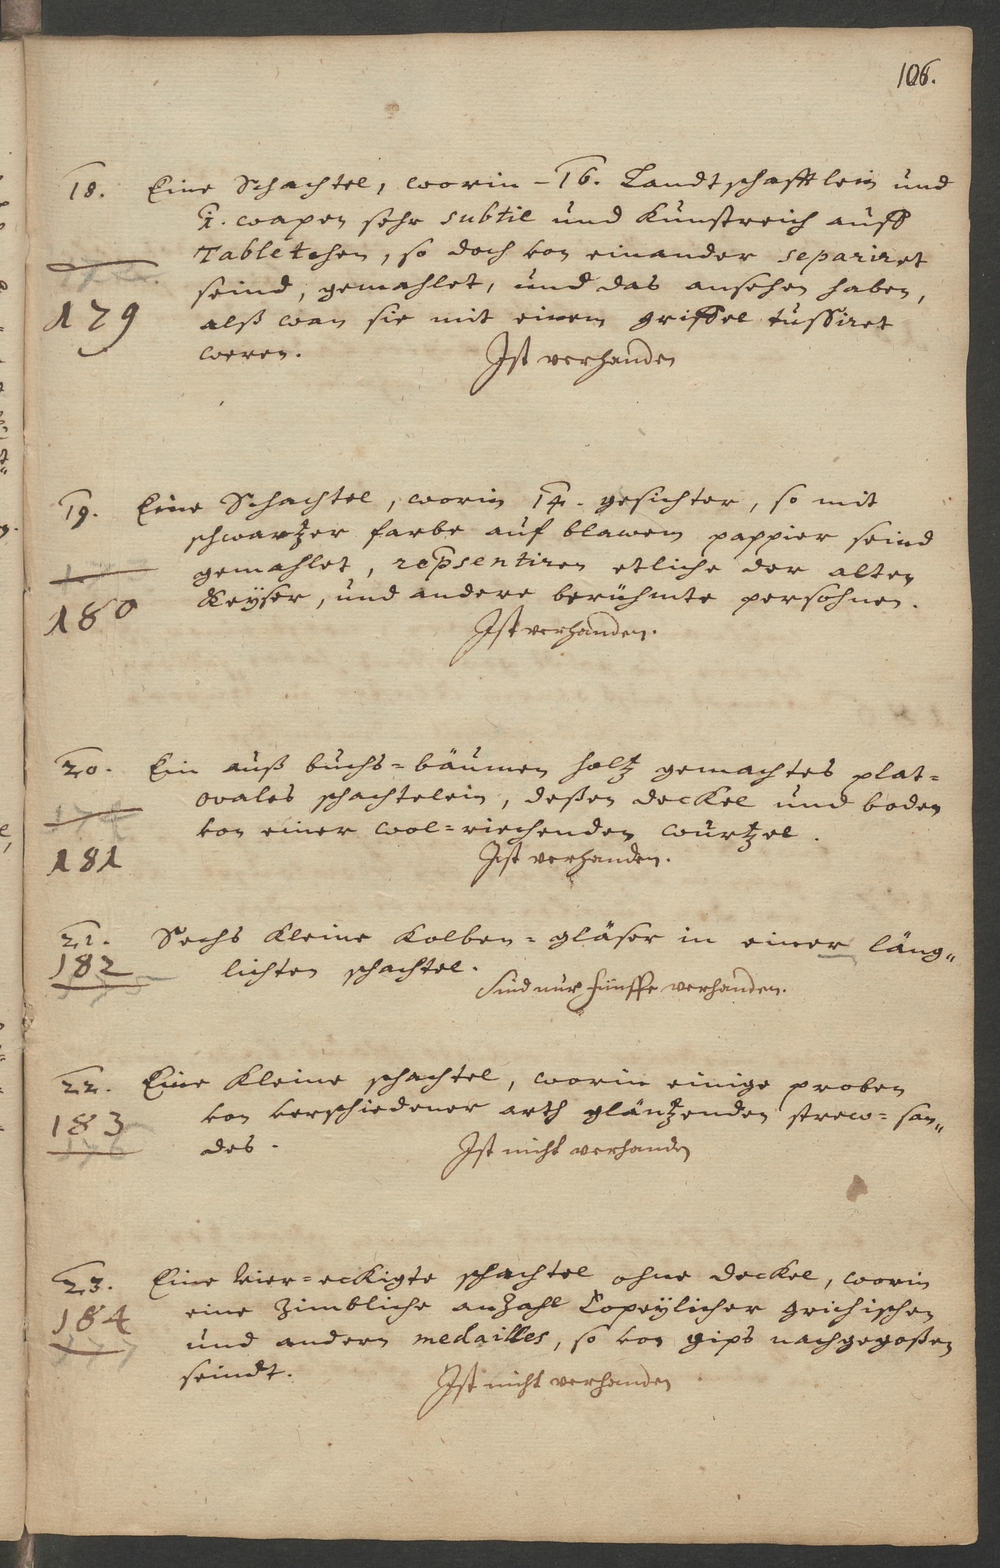 106.
18. Eine Schachtel, worin 16. Landtschafftlein und
1. wapen sehr subtil und Kunstreich auff
Tabletchen, so doch von einander separiret
seind, gemahlet, und das ansehen haben,
179
alß wan sie mit einem griffel tussiret
weren. Ist verhanden
19. Eine Schachtel, worin 14. gesichter, so mit
schwartzer farbe auf blawem pappier seind
gemahlet, repsentiren etliche der alten
180
Keyser, und andere berühmte persohnen.
Ist verhanden.
20. Ein auß buchs-bäumen holtz gemachtes plat-
ovales schachtelein, deßen deckel und boden
von einer wol-riechenden wurtzel.
181
Ist verhanden.
21. Sechs Kleine Kolben-gläser in einer läng-
182
lichten schachtel.
Sind nur fünffe verhanden.
22. Eine Kleine schachtel, worin einige proben
183
von verschiedener arth gläntzenden strew-san-
des. Ist nicht verhanden
23. Eine vier-eckigte schachtel ohne deckel, worin
184
eine zimbliche anzahl Copeylicher grichischen
und andern medailles, so von gips nachgegoßen
seindt. Ist nicht verhanden